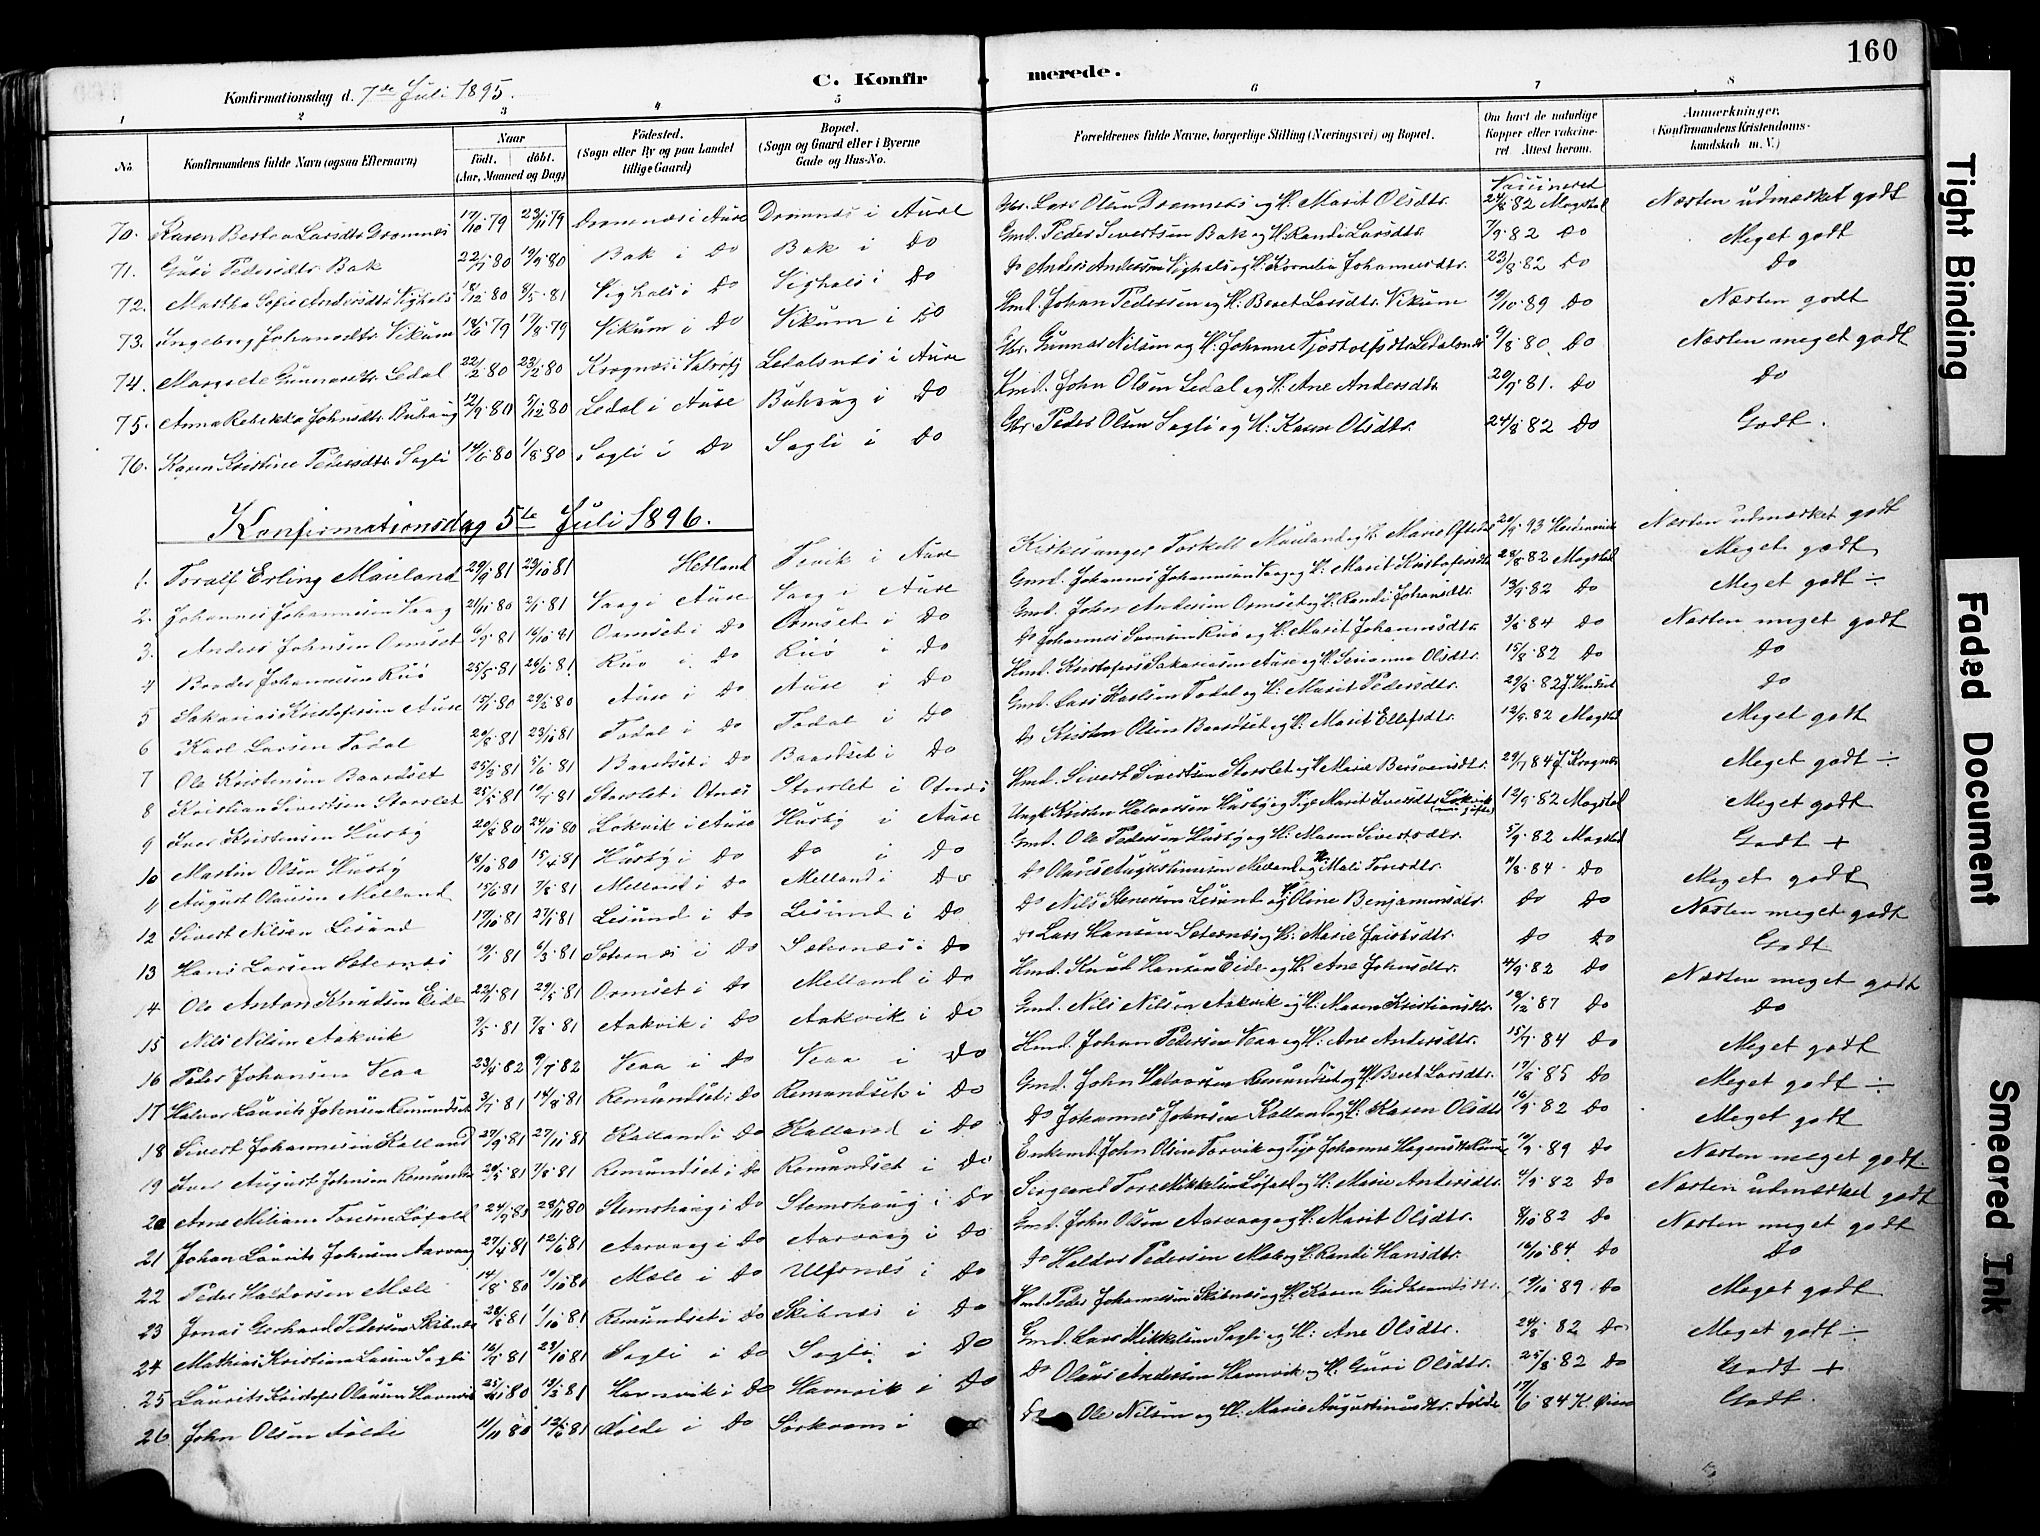 160
C. Konfirmerede.
Konfirmationsdag d. 7de Juli 1895.
1 2 3 4 5 6 7 8
No. Konfirmandens fulde Navn (ogsaa Efternavn) Naar født. døbt. (Aar, Maaned og Dag) Fødested. (Sogn eller By og paa Landet tillige Gaard) Bopæl. (Sogn og Gaard eller i Byerne Gade og Hus-No. Forældrenes fulde Navne, borgerlige Stilling (Næringsvei) og Bopæl. Om havt de naturlige Kopper eller vakcineret Attest herom. Anmerkninger. (Konfirmandens Kristendomskundskab m. V.)
Vaccineret
70. Karen Berta Larsdtr Dromnes 17/10 79 23/11 79 Dromnes i Aure Dromnes i Aure Gbr. Lars Olsen Dromnes og H. Marit Olsdtr. 24/8 82 Magstal Næsten udmærket godt
71. Guri Pedersdtr Bak 22/7 80 19/9 80 Bak i Do Bak i Do Gmd. Peder Sivertsen Bak og H. Randi Larsdtr. 7/9 82 Do Meget godt
72. Martha Sofie Andersdtr Vighals 18/12 80 8/5 81 Vighals i Do Vighals i Do Do Anders Andersen Vighals og H. Kornelia Johannesdtr. 23/8 82 Do Do
73. Ingeborg Johansdtr Vikum 14/6 79 17/8 79 Vikum i Do Vikum i Do Hmd. Johan Pedersen og H. Beret Larsdtr. Vikum 19/10 89 Do Næsten godt
74. Margrete Gunnarsdtr Ledal 22/2 80 23/2 80 Krognes i Valsøfj Ledalsnes i Aure Gbr. Gunnar Nilsen og H. Johanne Tjostolfsdtr Ledalsnes 9/8 80 Do Næsten meget godt
75. Anna Rebekka Johnsdtr Buhaug 12/9 80 5/12 80 Ledal i Aure Buhaug i Do Hmd. John Olsen Ledal og H. Ane Andersdtr 20/9 81. Do Do
76. Karen Kristine Pedersdtr Sagli 14/6 80 1/8 80 Sagli i Do Sagli i Do Gbr. Peder Olsen Sagli og H. Karen Olsdtr. 24/8 82 Do Godt.
Konfirmationsdag 5te Juli 1896.
1. Toralf Erling Mauland 29/9 81 23/10 81 Hetland Tevik i Aure Kirkesanger Torkell Mauland og H. Marie Oftedal 20/9 93 Næsten udmærket godt
2. Johannes Johannesen Vaag 21/11 80 2/1 81 Vaag i Aure Vaag i Aure Gmd. Johannes Johannesen Vaag og H. Marit Kristofersdtr 28/8 82 Magstal Meget godt
3. Anders Johnsen Ormset 6/9 81 16/10 81 Ormset i Do Ormset i Do Gmd. John Andersen Ormset og H. Randi Johansdtr. 13/9 82 Do Meget godt ÷
4 Johannesen Ruø 25/5 81 26/6 81 Ruø i Do Ruø i Do Do Johannes Ruø og H. Marit Johannesdtr. 3/8 84 Do Næsten meget godt
5 Sakarias Kristofersen Aure 15/1 80 29/2 80 Aure i Do Aure i Do Hmd. Kristofer Sakariasen Aure og H. Serianna Olsdtr. 15/8 82 Do Do
6 Karl Larsen Todal 20/8 81 23/10 81 Todal i Do Todal i Do Gmd. Lars Karlsen Todal og H. Marit Pedersdtr. 29/8 82 Do
7 Ole Kristensen Baardset 25/3 81 5/6 81 Baardset i Do Baardset i Do Do Kristen Olsen Baardset og H. Marit Ellefsdtr. 12/9 82 Magstal Meget godt
8 Kristian Sivertsen Storslet 25/5 81 10/7 81 Storslet i Otnes Storslet i Otnes Hmd. Sivert Sivertsen Storslet og H. Marie 29/7 84 J. Krognes Meget godt ÷
9 Iver Kristensen Husby 20/8 80 24/10 80 Løkvik i Aure Husby i Aure Ungk Kristen Halvorsen Husby og Pige Marit Iversdtr. Løkvik 12/9 82 Magstal Meget godt
10 Martin Olsen Husby 18/10 80 15/4 81 Husby i Do Do i Do Gmd. Ole Pedersen Husby og H. Maren Sivertsdtr. 5/9 82 Magstad Godt +
11 August Olausen Melland 15/6 81 7/8 81 Melland i Do Melland i Do Do Olaus Augustinusen Melland og H. Mali Toresdtr. 11/8 84 Do Meget godt
12 Sivert Nilsen Lesund 17/10 81 27/11 81 Lesund i Do Lesund i Do Do Nils Stenersen Lesund og H. Oline Benjaminsdtr. Do Do Næsten meget godt
13 Hans Larsen Seternes 19/1 81 6/3 81 Seternes i Do Seternes i Do Do Lars Hansen Seternes og H. Marie Do Do Godt
14 Ole Anton Knudsen Eide 22/1 81 29/5 81 Ormset i Do Melland i Do Hmd. Knud Hansen Eide og H. Ane Johnsdtr. 4/9 82 Do Næsten meget godt
15 Nils Nilsen Aakvik 9/5 81 7/8 81 Aakvik i Do Aakvik i Do Gmd. Nils Nilsen Aakvik og H. Maren Kristiansdtr. 18/12 87 Do Do
16 Peder Johansen Veaa 23/4 82 9/7 82 Veaa i Do Veaa i Do Hmd. Johan Petersen Veaa og H. Ane Andersdtr. 15/9 84 Do Meget godt
17 Halvor Laurits Johnsen Remundset 3/7 81 14/8 81 Remundset i Do Remundset i Do Gmd. John Halvorsen Remundset og H. Beret Larsdtr. 17/8 85 Do Meget godt ÷
18 Sivert Johannesen Kalland 27/9 81 27/11 81 Kalland i Do Kalland i Do Do Johannes Johnsen Kalland og H. Karen Olsdtr 16/9 82 Do Meget godt
19 Iver August Johnsen Remundset 20/5 81 7/8 81 Remundset i Do Remundset i Do Enkemd. John Olsen Torvik og Pige Johanna 19/9 89 Do Næsten meget godt
20 Arne Miliam Toresen Løfald 24/9 80 28/11 80 Stemshaug i Do Stemshaug i Do Sergeant Tore Mikkelsen Løfald og H. Marie Andersdtr. 4/9 82 Do Næsten udmærket godt
21 Johan Laurits Johnsen Aarvaag 27/4 81 12/6 81 Aarvaag i Do Aarvaag i Do Gmd. John Olsen Aarvaag og H. Marit Olsdtr. 8/10 82 Do Næsten meget godt
22 Peder Haldorsen Mæle 14/8 80 10/10 80 Mæle i Do Ulfsnes i Do Do Haldor Pedersen Mæle og H. Randi Hansdtr. 16/10 84. Do Do
23 Jonas Gerhard Pedersen Skibnes 20/8 81 1/10 81 Remundset i Do Skibnes i Do Hmd. Peder Johannesen Skibnes og H. Karen Gudbrandsdtr. 19/10 89 Do Meget godt
24 Mathias Kristian Larsen Sagli 16/9 81 29/10 81 Sagli i Do Sagli i Do Gmd. Lars Mikkelsen Sagli og H. Ane Olsdtr. 24/8 82 Do Meget godt ÷
25 Laurits Kristofer Olausen Havnvik 25/11 80 13/3 81 Havnvik i Do Havnvik i Do Do Olaus Andersen Havnvik og H. Guri Olsdtr. 25/8 82 Do Godt +
26 John Olsen Følde 11/11 80 12/6 81 Følde i Do i Do Ole Nilsen og H. Marie Augustinusdtr. Følde 17/6 84 Godt.
Tight Binding
Faded Document
Smeared Ink